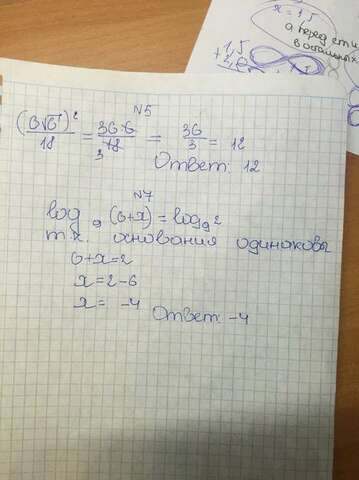 x = 1,5
а перед эти
+1,5
N5
(6√6)² / 18 = 36·6 / 18 3 = 36 / 3 = 12
Ответ: 12
N7
log₉ (6+x) = log₉ 2
т.к. основания одинаковы
6+x=2
x=2-6
x= -4
Ответ -4